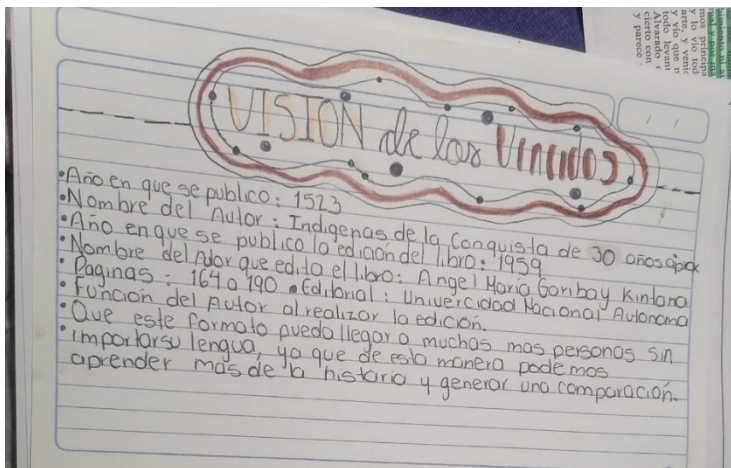 VISION de los Vencidos
•Año en que se publico: 1523
•Nombre del Autor: Indigenas de la Conquista de 30 años aprox
•Año en que se publico la edición del libro: 1959
•Nombre del Autor que edito el libro: Angel Maria Garibay Kintana
•Paginas: 164 a 190 •Editorial: Univercidad Nacional Autonoma
•Función del Autor al realizar la edición.
•Que este formato pueda llegar a muchas mas personas sin
•importar su lengua, ya que de esta manera podemos
aprender más de la historia y generar una comparación.
mos principa
y lo vio tod
arte, y venic
y vio que n
todo levant
Alvarado
cierto con
y parece